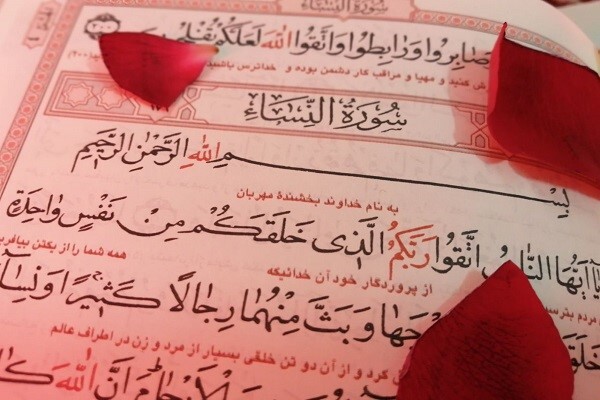 سُورَةُ النِّسَاءِ
صَابِرُوا وَرَابِطُوا وَاتَّقُوا اللَّهَ لَعَلَّكُمْ تُفْلِحُونَ
کنید و مهیا و مراقب کار دشمن بوده و خداترس باشید
سُورَةُ النِّسَاءِ
بِسْمِ اللَّهِ الرَّحْمَٰنِ الرَّحِيمِ
به نام خداوند بخشندهٔ مهربان
يَا أَيُّهَا النَّاسُ اتَّقُوا رَبَّكُمُ الَّذِي خَلَقَكُمْ مِنْ نَفْسٍ وَاحِدَةٍ
مردم از پروردگار خود آن خدائیکه همه شما را از یکتن
وَبَثَّ مِنْهُمَا رِجَالًا كَثِيرًا وَنِسَاءً
کرد و از آن دو تن خلقی بسیار از مرد و زن در اطراف عالم
اللَّهَ